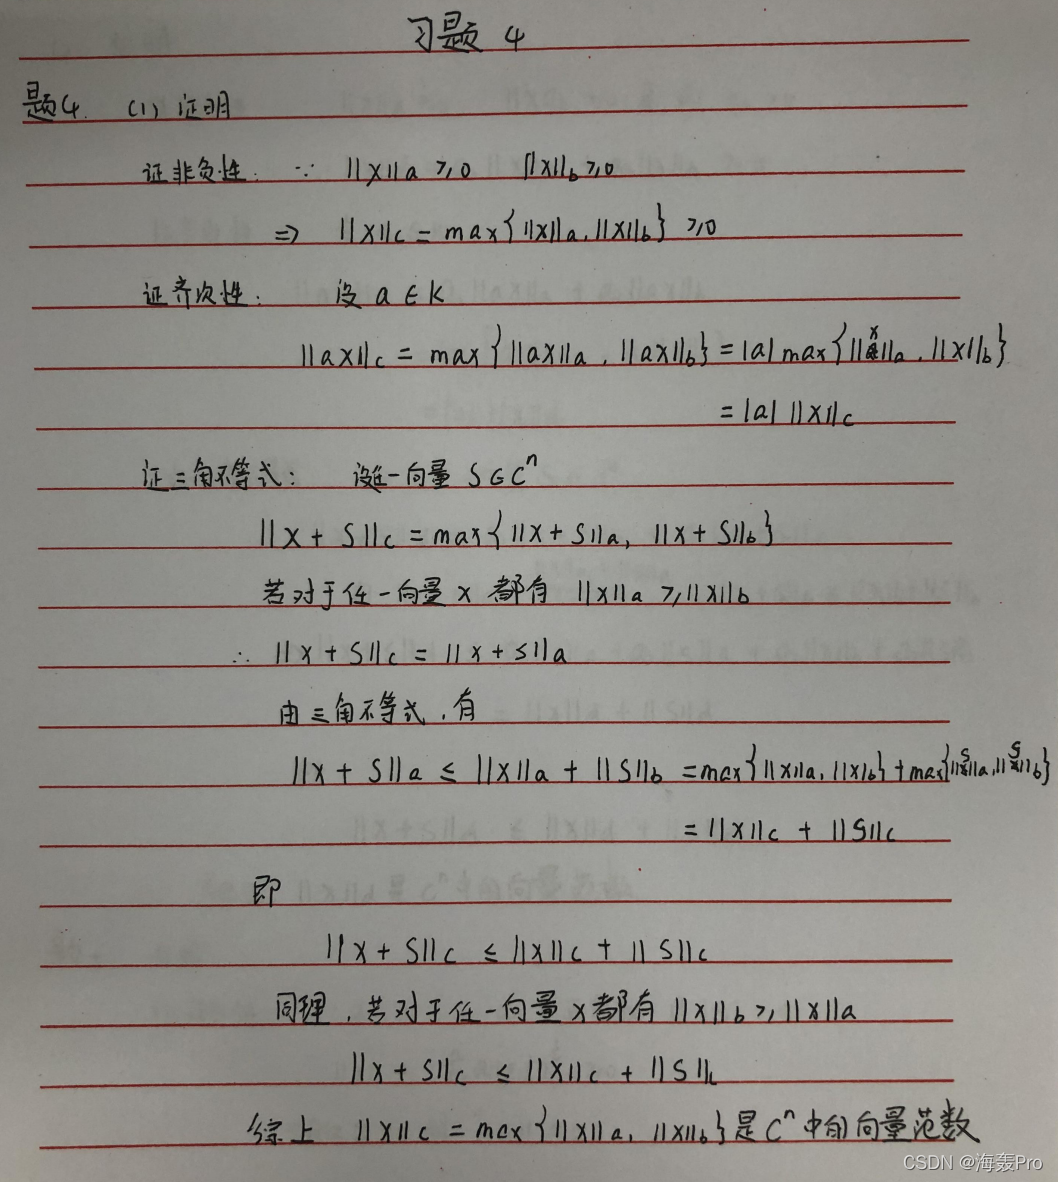 习题 4
题4. (1) 证明
证非负性. ∵ ||X||a ≥0 ||X||b ≥0
⇒ ||X||c = max{||X||a, ||X||b} ≥0
证齐次性: 设 a ∈ K
||aX||c = max{||aX||a, ||aX||b} = |a| max{||X||a, ||X||b}
= |a| ||X||c
证三角不等式: 设任一向量 S∈Cⁿ
||X + S||c = max{||X + S||a, ||X + S||b}
若对于任一向量 X 都有 ||X||a ≥ ||X||b
∴ ||X + S||c = ||X + S||a
由三角不等式,有
||X + S||a ≤ ||X||a + ||S||b = max{||X||a, ||X||b} + max{||S||a, ||S||b}
= ||X||c + ||S||c
即
||X + S||c ≤ ||X||c + ||S||c
同理,若对于任一向量 X 都有 ||X||b ≥ ||X||a
||X + S||c ≤ ||X||c + ||S||c
综上 ||X||c = max{||X||a, ||X||b} 是 Cⁿ 中的向量范数
CSDN @海轰Pro